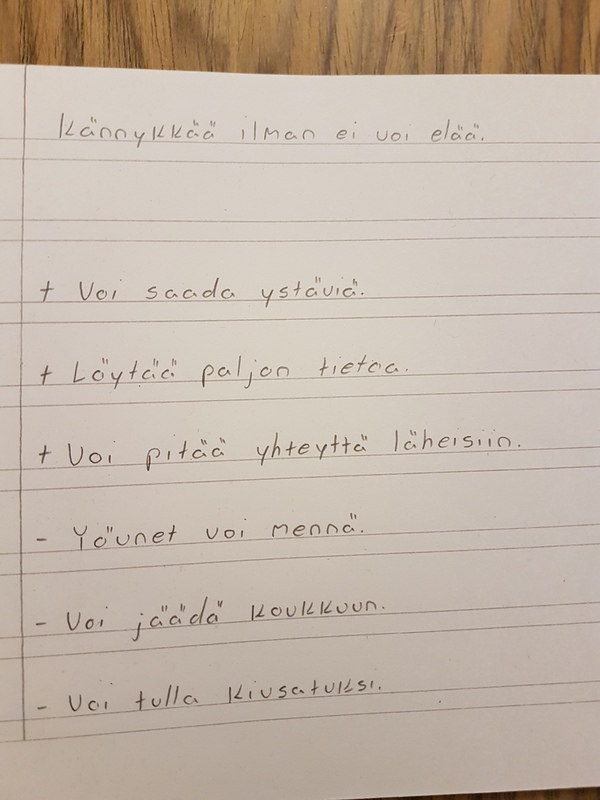 Kännykkää ilman ei voi elää.
+ Voi saada ystäviä.
+ Löytää paljon tietoa.
+ Voi pitää yhteyttä läheisiin.
- Yöunet voi mennä.
- Voi jäädä koukkuun.
- Voi tulla kiusatuksi.